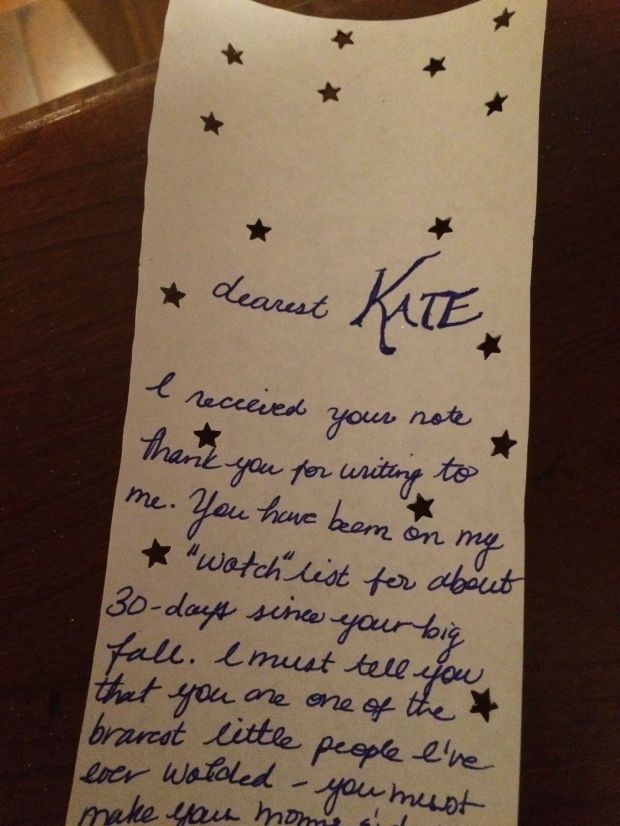 dearest KATE
I recieved your note
Thank you for writing to
me. You have been on my
"watch" list for about
30-days since your big
fall. I must tell you
that you are one of the
bravest little people I've
ever watched - you must
make your momma